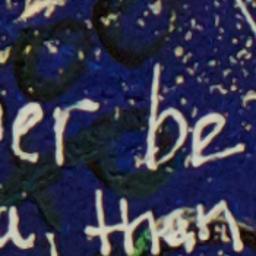 er be
a, than